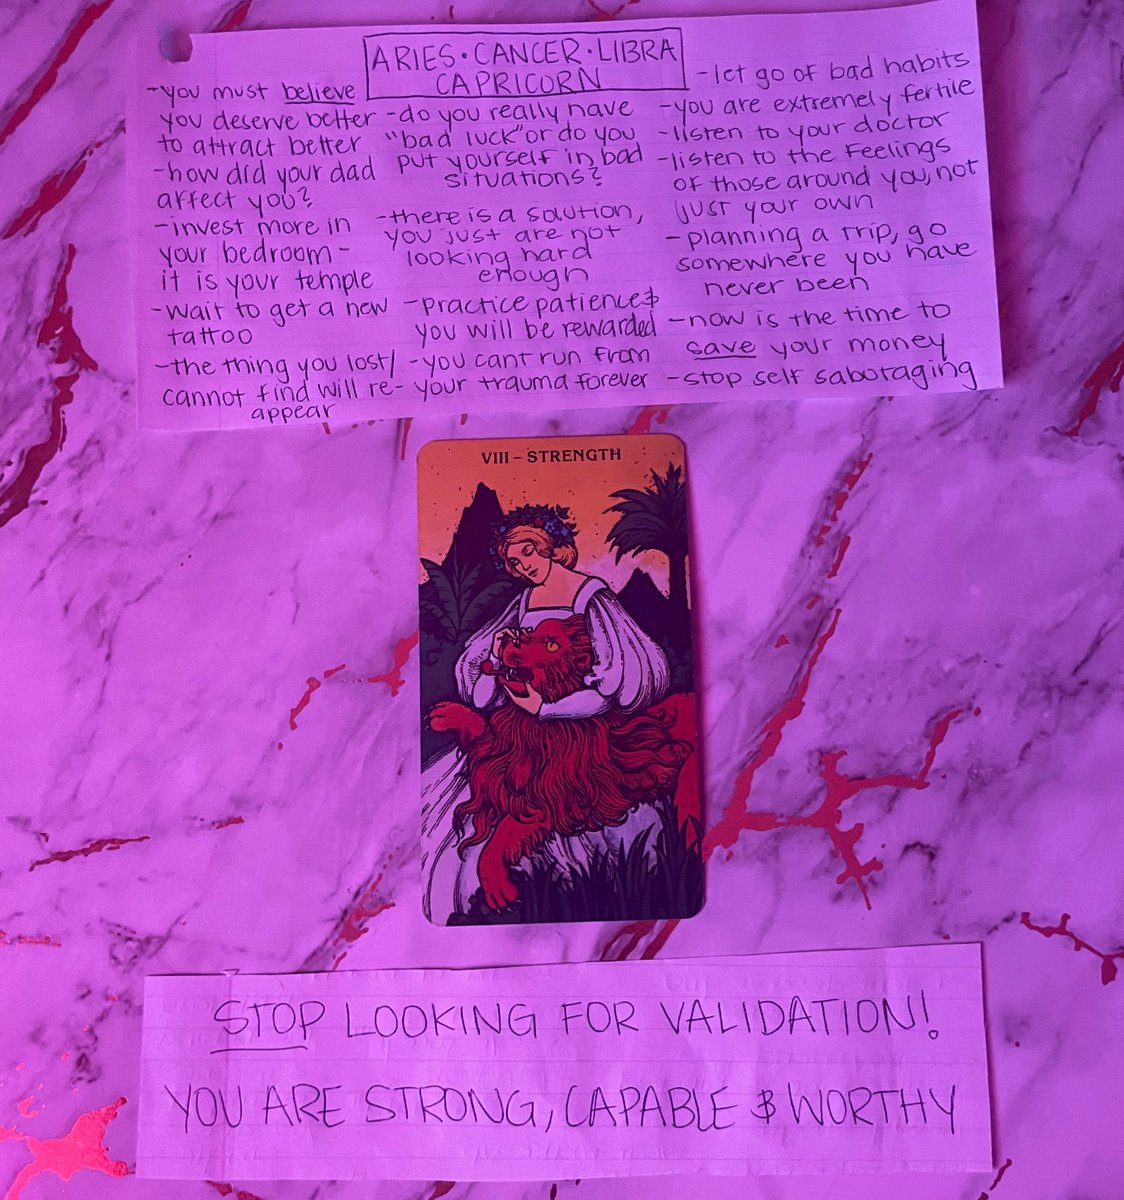 ARIES · CANCER · LIBRA
CAPRICORN
-you must believe
you deserve better
to attract better
-how did your dad
affect you?
-invest more in
your bedroom -
it is your temple
-wait to get a new
tattoo
-the thing you lost/
cannot find will re-
appear
-do you really have
"bad luck" or do you
put yourself in bad
situations?
-there is a solution,
you just are not
looking hard
enough
-Practice patience &
you will be rewarded
-you cant run from
your trauma forever
-let go of bad habits
-you are extremely fertile
-listen to your doctor
-listen to the feelings
of those around you, not
just your own
-planning a trip, go
somewhere you have
never been
-now is the time to
save your money
-stop self sabotaging
VIII – STRENGTH
STOP LOOKING FOR VALIDATION!
YOU ARE STRONG, CAPABLE & WORTHY